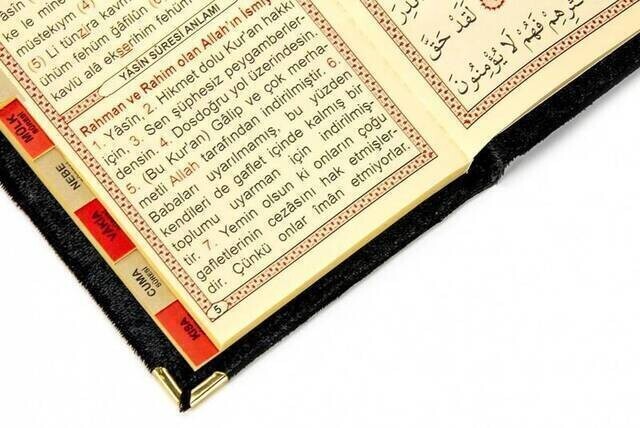 müstekıym (4)
(5) Li tünzira kavmen
ühüm fehüm ğâfilûn
kavlü alâ ekserihim fehüm
YÂSİN SÛRESİ ANLAMI
Rahman ve Rahim olan Allah'ın İsmiy
1. Yâsîn. 2. Hikmet dolu Kur'an hakkı
için, 3. Sen şüphesiz peygamberler-
densin. 4. Dosdoğru yol üzerindesin.
5. (Bu Kur'an) Gâlip ve çok merha-
metli Allah tarafından indirilmiştir. 6.
Babaları uyarılmamış, bu yüzden
kendileri de gaflet içinde kalmış bir
toplumu uyarman için indirilmiş-
tir. 7. Yemin olsun ki onların çoğu
gafletlerinin cezâsını hak etmişler-
dir. Çünkü onlar îmân etmiyorlar.
5
لَقَدْ حَقَّ
فَهُمْ لَا يُؤْمِنُونَ
MÜLK
SÛRESİ
NEBE
VÂKIA
CUMA
SÛRESİ
KISA